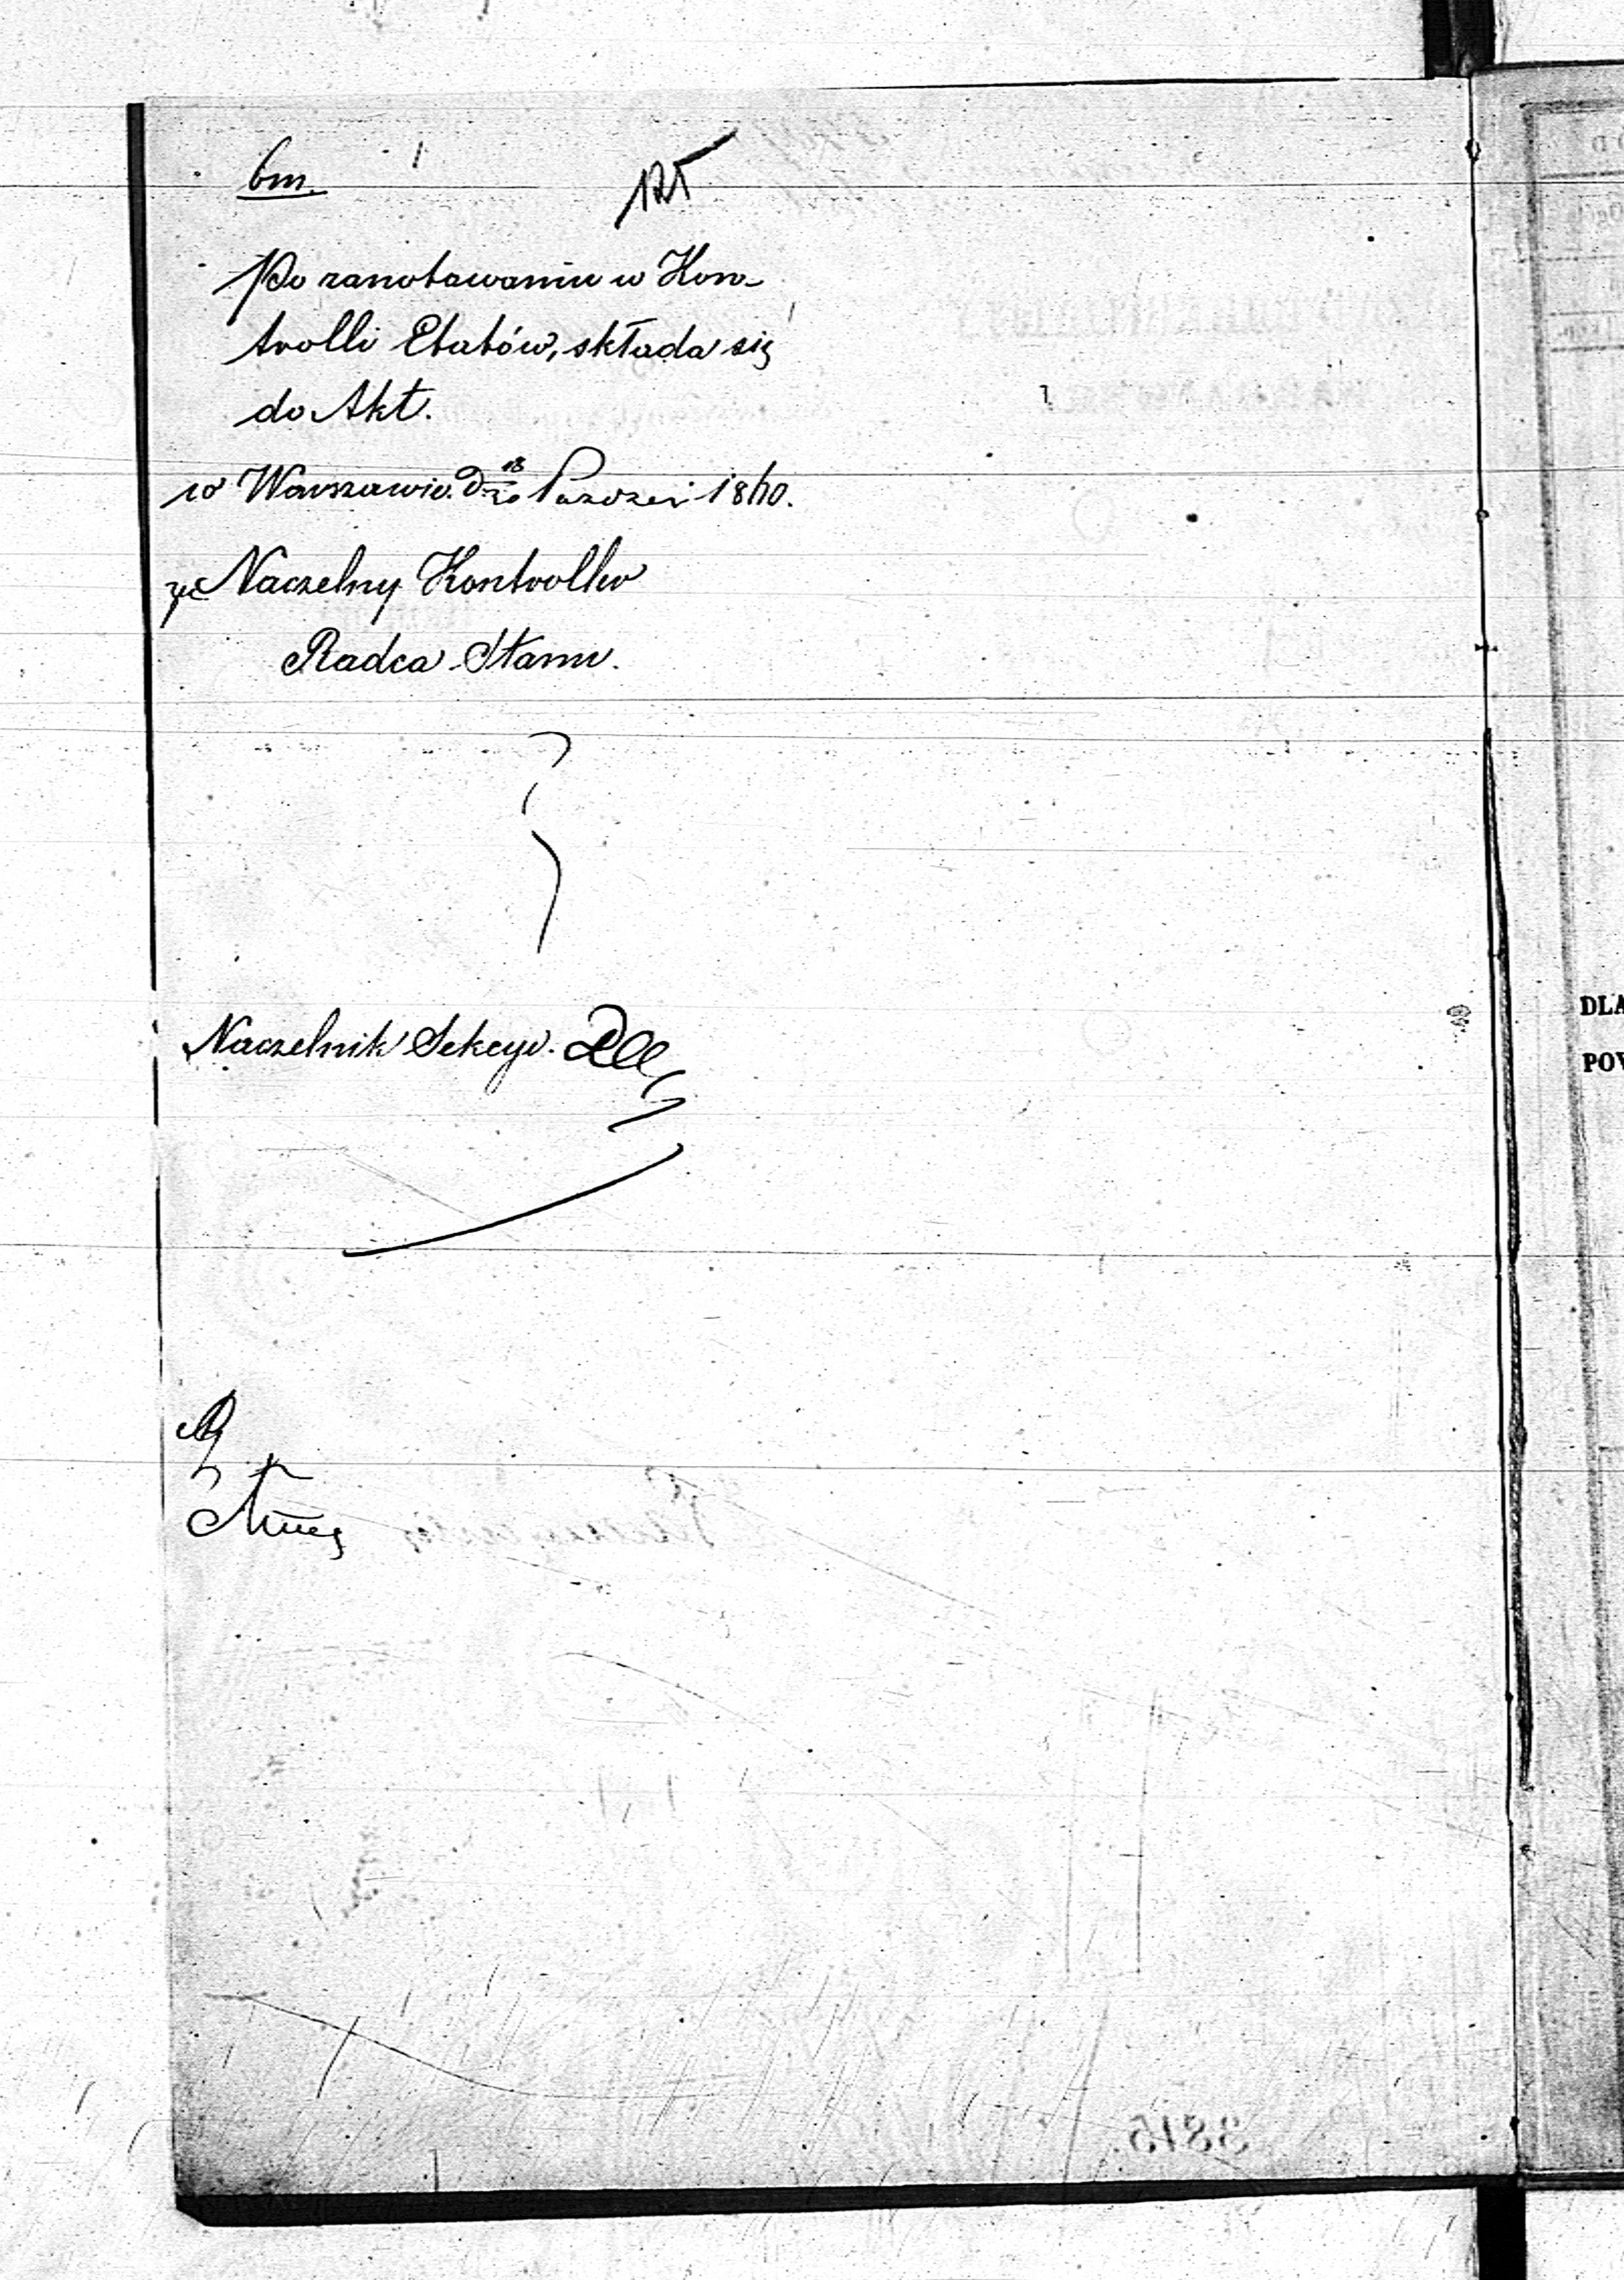 bm.
125
Po zanotowaniu w Kon-
trolli Etatów, składa się
do Akt.
w Warszawie. D 18/30 Paździer 1860.
Naczelny Kontroller
Radca Stanu.
Naczelnik Sekcyi.
DLA
POW
3815.